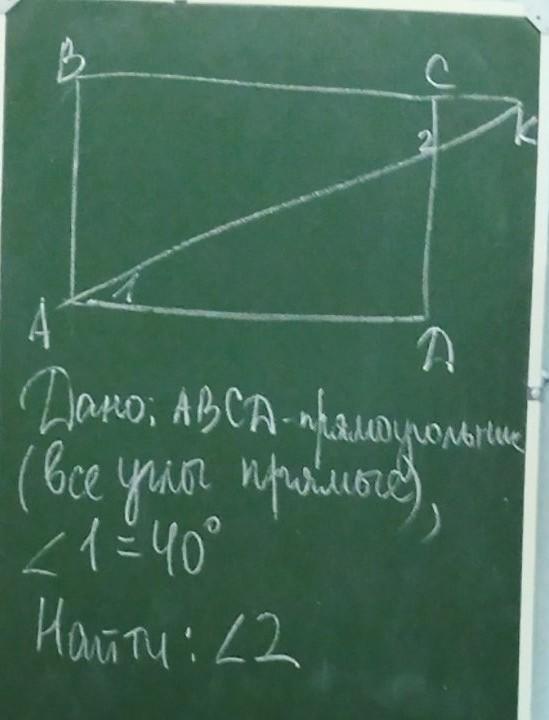 B C
2 K
1
A D
Дано: ABCD-прямоугольник
(все углы прямые),
∠1=40°
Найти: ∠2